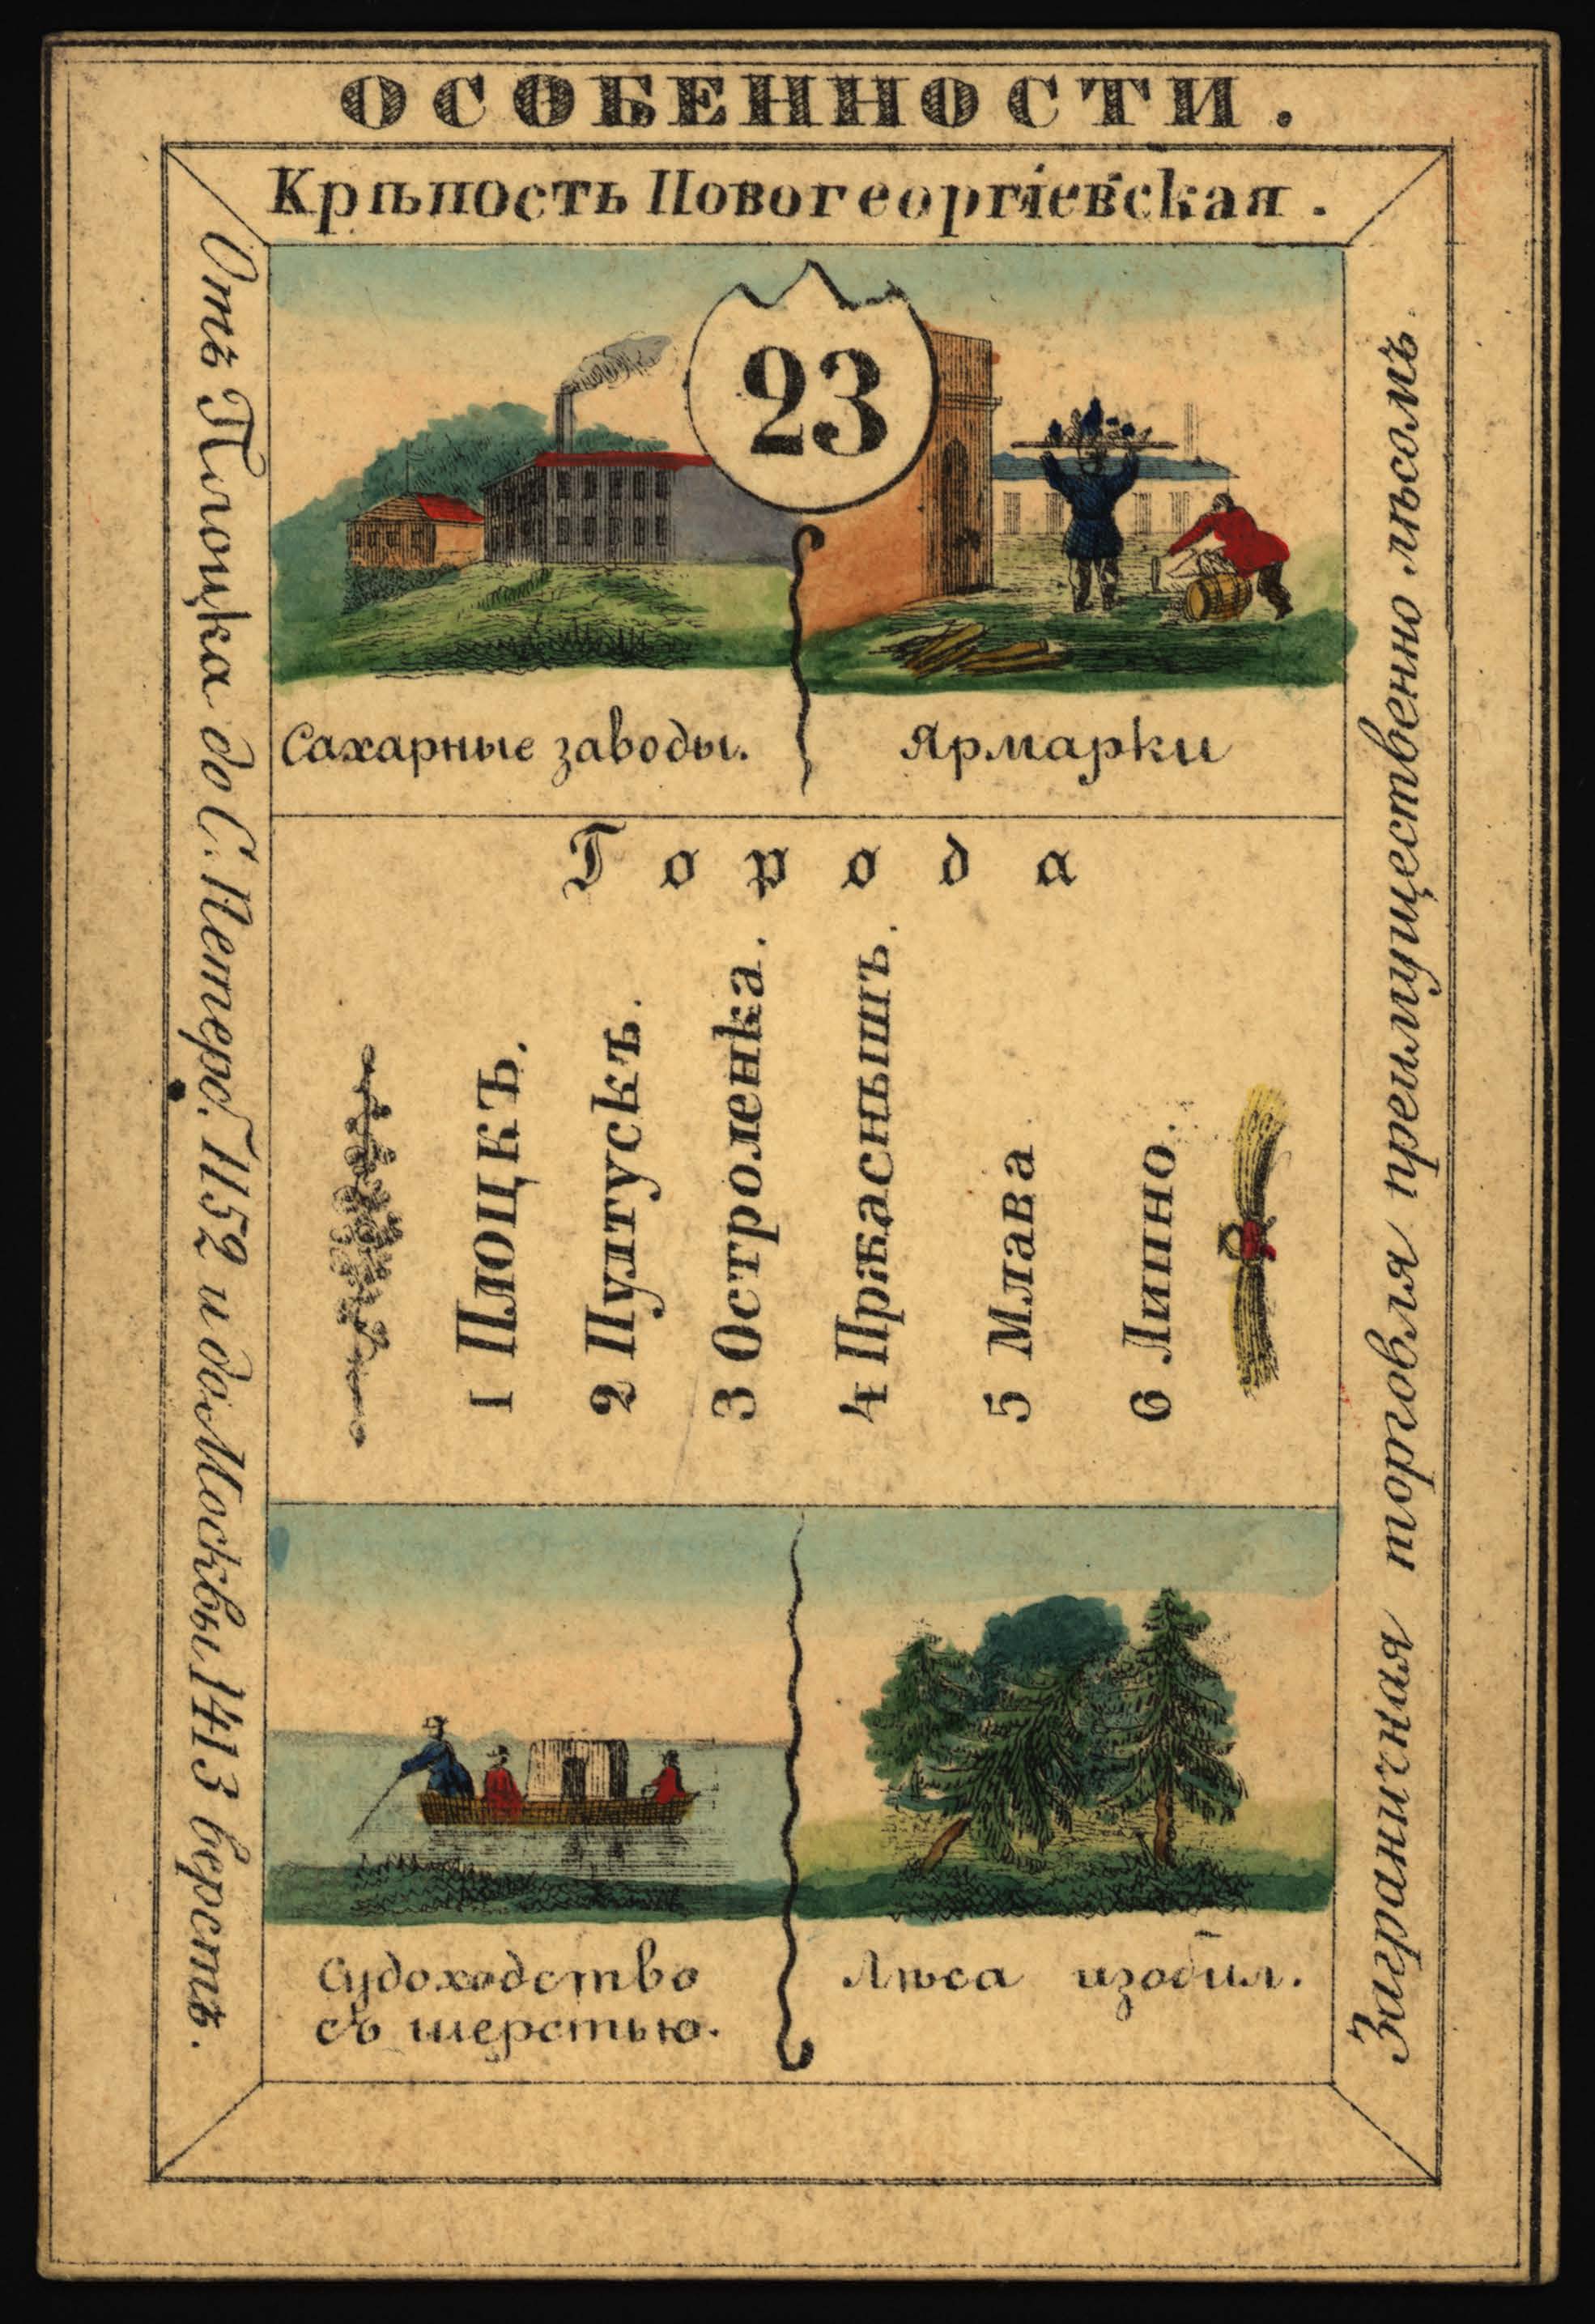 ОСОБЕННОСТИ.
Крѣпость Новогеоргіевская.
Отъ Плоцка до С. Петерб. 1152 и до Москвы 1413 верстъ.
23
Сахарные заводы.
Ярмарки
Города
1 Плоцкъ.
2 Пултускъ.
3 Остроленка.
4 Прѣаснышъ.
5 Млава
6 Липно.
Судоходство
съ шерстью.
Лѣса изобил.
Заграничная торговля преимущественно лѣсомъ.